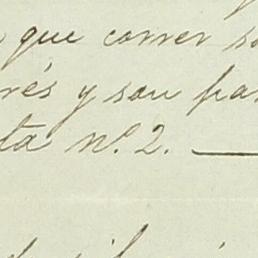 que correr so
rés y son pa
ta nº. 2. —